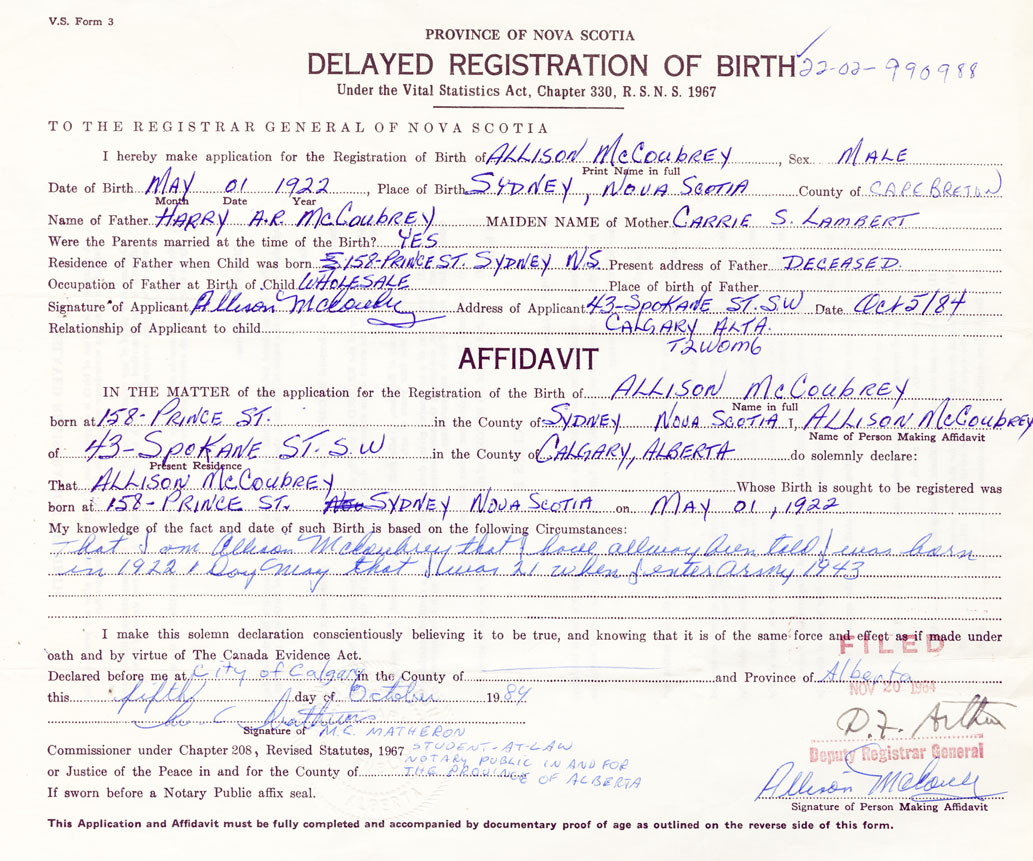 V.S. Form 3
PROVINCE OF NOVA SCOTIA
DELAYED REGISTRATION OF BIRTH 22-02-990988
Under the Vital Statistics Act, Chapter 330, R.S.N.S. 1967
TO THE REGISTRAR GENERAL OF NOVA SCOTIA
I hereby make application for the Registration of Birth of ALLISON McCOUBREY, Sex MALE
Print Name in full
Date of Birth MAY 01 1922, Place of Birth SYDNEY, NOVA SCOTIA County of CAPE BRETON
Month Date Year
Name of Father HARRY A.R. McCOUBREY MAIDEN NAME of Mother CARRIE S. LAMBERT
Were the Parents married at the time of the Birth? YES
Residence of Father when Child was born 158-PRINCE ST. SYDNEY N.S. Present address of Father DECEASED.
Occupation of Father at Birth of Child WHOLESALE Place of birth of Father
Signature of Applicant Allison McCoubrey Address of Applicant 43-SPOKANE ST. S.W Date Oct 5/84
Relationship of Applicant to child CALGARY ALTA.
T2W0M6
AFFIDAVIT
IN THE MATTER of the application for the Registration of the Birth of ALLISON McCOUBREY
Name in full
born at 158-PRINCE ST. in the County of SYDNEY NOVA SCOTIA I, ALLISON McCOUBREY
Name of Person Making Affidavit
of 43-SPOKANE ST. S.W in the County of CALGARY, ALBERTA do solemnly declare:
Present Residence
That ALLISON McCOUBREY Whose Birth is sought to be registered was
born at 158-PRINCE ST. SYDNEY NOVA SCOTIA on MAY 01, 1922
My knowledge of the fact and date of such Birth is based on the following Circumstances:
That I am Allison McCoubrey that I have allway been told I was born
in 1922 1 Day May that I was 21 when I enter Army 1943
I make this solemn declaration conscientiously believing it to be true, and knowing that it is of the same force and effect as if made under
oath and by virtue of The Canada Evidence Act.
FILED
Declared before me at City of Calgary in the County of and Province of Alberta
NOV 20 1984
this fifth day of October 1984
D.F. Arthur
Signature of M.C. MATHERON
Deputy Registrar General
Commissioner under Chapter 208, Revised Statutes, 1967 STUDENT-AT-LAW
NOTARY PUBLIC IN AND FOR
or Justice of the Peace in and for the County of THE PROVINCE OF ALBERTA
Allison McCoubrey
If sworn before a Notary Public affix seal.
Signature of Person Making Affidavit
This Application and Affidavit must be fully completed and accompanied by documentary proof of age as outlined on the reverse side of this form.